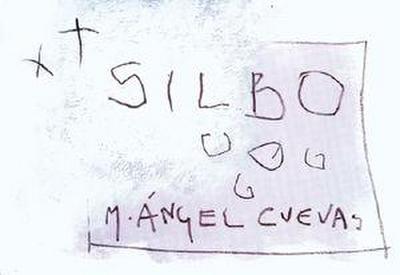 SILBO
M. ÁNGEL CUEVAS